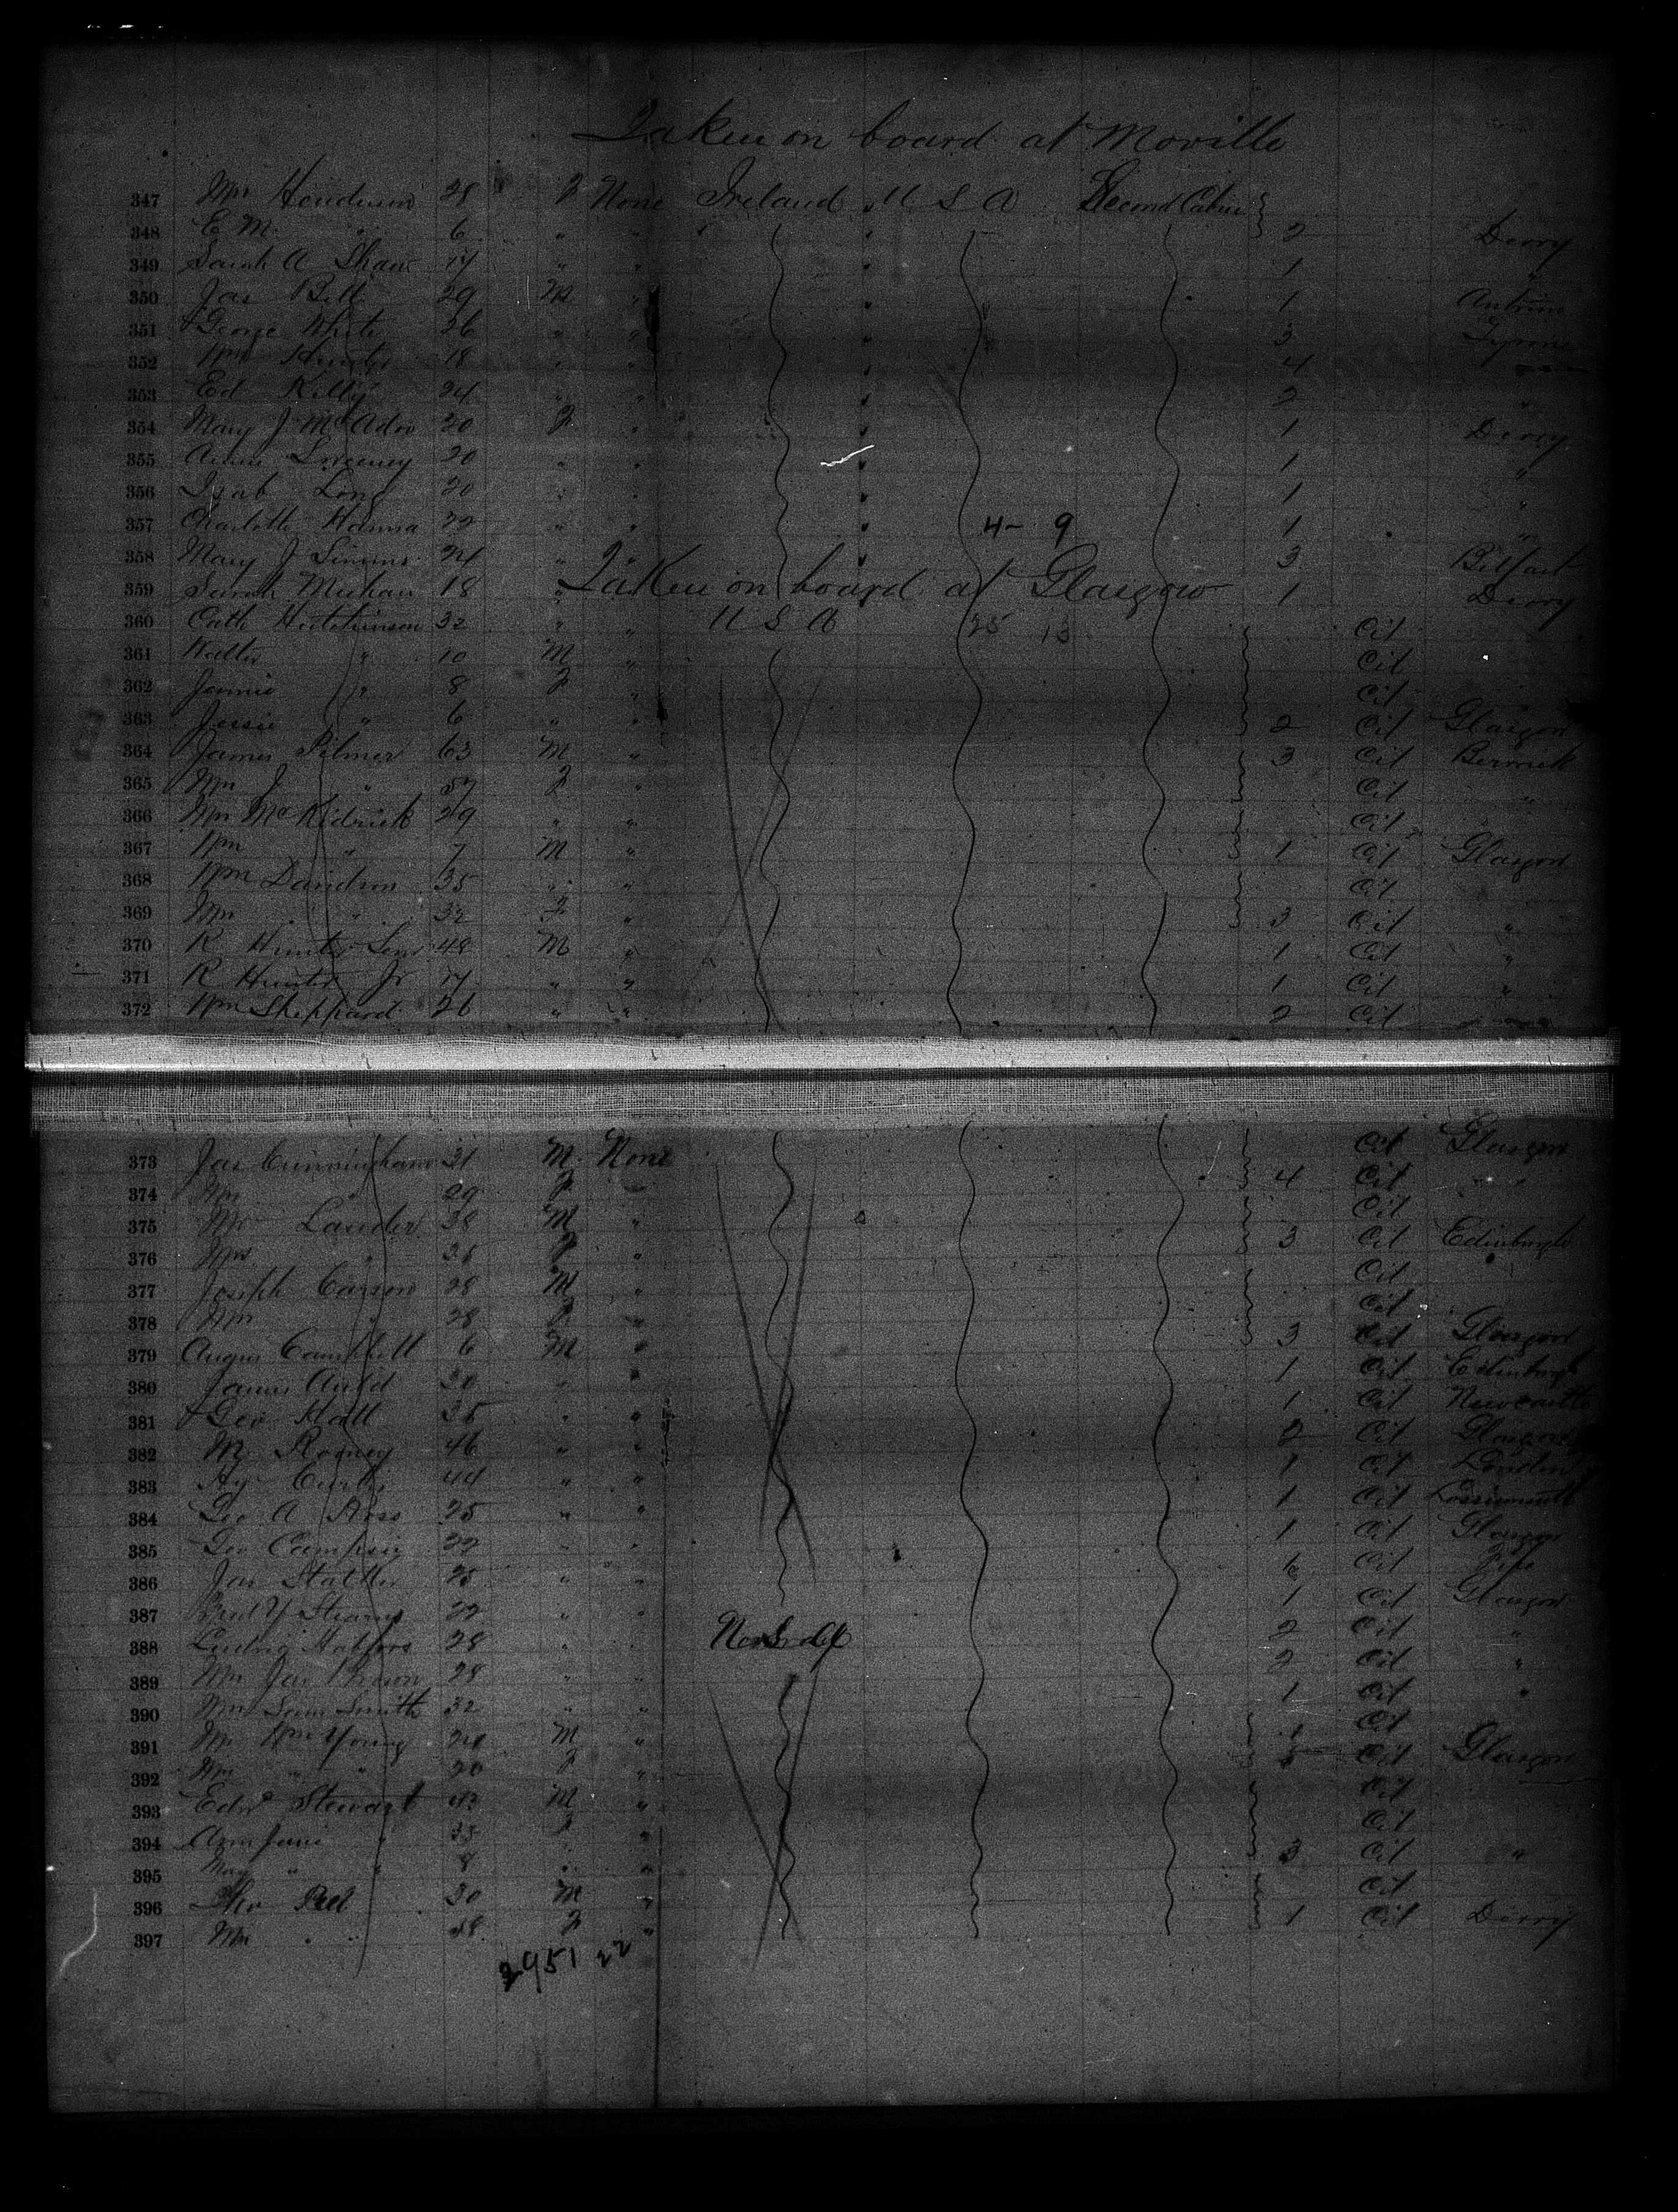 Taken on board at Moville
347 Mrs Henderson 28 F None Ireland U S A Second Cabin
348 E M " 6 " " 2 Derry
349 Sarah A Shaw 17 " " 1 "
350 Jas Bell 29 M " 1 Antrim
351 George White 26 " " 3 Tyrone
352 Wm Hunter 18 " " 4
353 Ed Kelly 24 " " 2 "
354 Mary J McAdoo 20 F " 1 Derry
355 Annie Sweeney 20 " " 1 "
356 Isab Long 20 " " 1 "
357 Charlotte Hanna 22 " " 4 - 9 1 "
358 Mary J Simms 24 " " 3 Belfast
Taken on board at Glasgow
359 Sarah Meehan 18 " 1 Derry
360 Cath Hutchinson 32 " " U S A 25 13 Cit
361 Walter " 10 M " Cit
362 Jennie " 8 F " Cit
363 Jessie " 6 " " 2 Cit Glasgow
364 James Pilmer 63 M " 3 Cit Berwick
365 Mrs J " 57 F " Cit "
366 Mrs McKidrick 29 " " Cit
367 Wm " 7 M " 1 Cit Glasgow
368 Wm Davidson 35 " " Cit
369 Mrs " 32 F " 3 Cit "
370 R Hunter Senr 48 M " 1 Cit "
371 R Hunter Jr 17 " " 1 Cit "
372 Wm Sheppard 26 " " 2 Cit
373 Jas Cunningham 31 M None Cit Glasgow
374 Mrs " 29 F 4 Cit "
375 Mr Lauder 38 M " Cit
376 Mrs " 35 F " 3 Cit Edinburgh
377 Joseph Carson 28 M " Cit
378 Mrs " 28 F " Cit
379 Angus Campbell 6 M " 3 Cit Glasgow
380 James Auld 30 " " 1 Cit Edinburgh
381 Geo Hall 35 " " 1 Cit Newcastle
382 M Rooney 46 " " 2 Cit Glasgow
383 Hy Curtis 44 " " 1 Cit London
384 Geo A Ross 25 " " 1 Cit Lossiemouth
385 Geo Campsie 22 " " 1 Cit Glasgow
386 Jas Statler 25 " " 6 Cit Fife
387 Y Stearns 22 " " 1 Cit Glasgow
388 Ludvig 28 " " 2 Cit "
389 Mrs Jas Brown 28 " " 2 Cit "
390 Mrs Sam Smith 32 " " 1 Cit "
391 Mr Wm Young 20 M " Cit
392 Mrs " " 20 F " Cit Glasgow
393 Edwd Stewart 43 M " Cit
394 Ann Jane " 35 F " Cit
395 May " " 8 " " 3 Cit "
396 Thos 30 M " Cit
397 Mrs " 28 F " 1 Cit Derry
2951 22